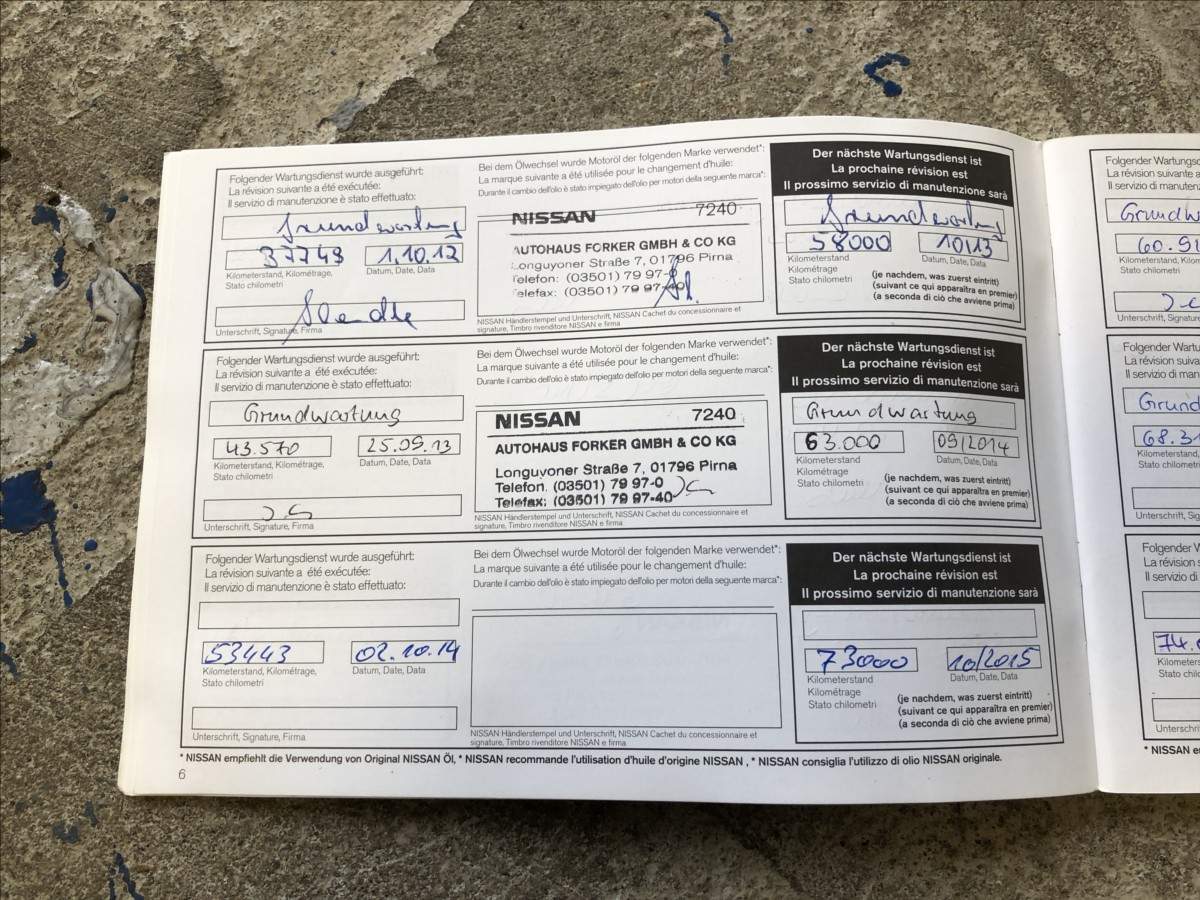 Folgender Wartungsdienst wurde ausgeführt:
La révision suivante a été exécutée:
Il servizio di manutenzione è stato effettuato:
Grundwartung
37749
1.10.12
Kilometerstand, Kilométrage,
Stato chilometri
Datum, Date, Data
Unterschrift, Signature, Firma
Bei dem Ölwechsel wurde Motoröl der folgenden Marke verwendet*:
La marque suivante a été utilisée pour le changement d'huile:
Durante il cambio dell'olio è stato impiegato dell'olio per motori della seguente marca*:
NISSAN 7240
AUTOHAUS FORKER GMBH & CO KG
Longuyoner Straße 7, 01796 Pirna
Telefon: (03501) 79 97-0
Telefax: (03501) 79 97-40
NISSAN Händlerstempel und Unterschrift, NISSAN Cachet du concessionnaire et
signature, Timbro rivenditore NISSAN e firma
Der nächste Wartungsdienst ist
La prochaine révision est
Il prossimo servizio di manutenzione sarà
Grundwartung
58000
10/13
Kilometerstand
Kilométrage
Stato chilometri
Datum, Date, Data
(je nachdem, was zuerst eintritt)
(suivant ce qui apparaîtra en premier)
(a seconda di ciò che avviene prima)
Folgender Wartungsdienst wurde ausgeführt:
La révision suivante a été exécutée:
Il servizio di manutenzione è stato effettuato:
Grundwartung
43.570
25.09.13
Kilometerstand, Kilométrage,
Stato chilometri
Datum, Date, Data
Unterschrift, Signature, Firma
Bei dem Ölwechsel wurde Motoröl der folgenden Marke verwendet*:
La marque suivante a été utilisée pour le changement d'huile:
Durante il cambio dell'olio è stato impiegato dell'olio per motori della seguente marca*:
NISSAN 7240
AUTOHAUS FORKER GMBH & CO KG
Longuyoner Straße 7, 01796 Pirna
Telefon: (03501) 79 97-0
Telefax: (03501) 79 97-40
NISSAN Händlerstempel und Unterschrift, NISSAN Cachet du concessionnaire et
signature, Timbro rivenditore NISSAN e firma
Der nächste Wartungsdienst ist
La prochaine révision est
Il prossimo servizio di manutenzione sarà
Grundwartung
63.000
09/2014
Kilometerstand
Kilométrage
Stato chilometri
Datum, Date, Data
(je nachdem, was zuerst eintritt)
(suivant ce qui apparaîtra en premier)
(a seconda di ciò che avviene prima)
Folgender Wartungsdienst wurde ausgeführt:
La révision suivante a été exécutée:
Il servizio di manutenzione è stato effettuato:
53443
02.10.14
Kilometerstand, Kilométrage,
Stato chilometri
Datum, Date, Data
Unterschrift, Signature, Firma
Bei dem Ölwechsel wurde Motoröl der folgenden Marke verwendet*:
La marque suivante a été utilisée pour le changement d'huile:
Durante il cambio dell'olio è stato impiegato dell'olio per motori della seguente marca*:
NISSAN Händlerstempel und Unterschrift, NISSAN Cachet du concessionnaire et
signature, Timbro rivenditore NISSAN e firma
Der nächste Wartungsdienst ist
La prochaine révision est
Il prossimo servizio di manutenzione sarà
73000
10/2015
Kilometerstand
Kilométrage
Stato chilometri
Datum, Date, Data
(je nachdem, was zuerst eintritt)
(suivant ce qui apparaîtra en premier)
(a seconda di ciò che avviene prima)
* NISSAN empfiehlt die Verwendung von Original NISSAN Öl, * NISSAN recommande l'utilisation d'huile d'origine NISSAN , * NISSAN consiglia l'utilizzo di olio NISSAN originale.
6
Folgender
La révision s
Il servizio di
Kilometerst
Stato chilom
Unterschrift
Folgender
La révision
Il servizio di
68.3
Kilometerst
Stato chilo
Unterschrift, Sig
Folgender
La révision
Il servizio di
74.
Kilometers
Stato chilo
Unterschri
* NISSAN e